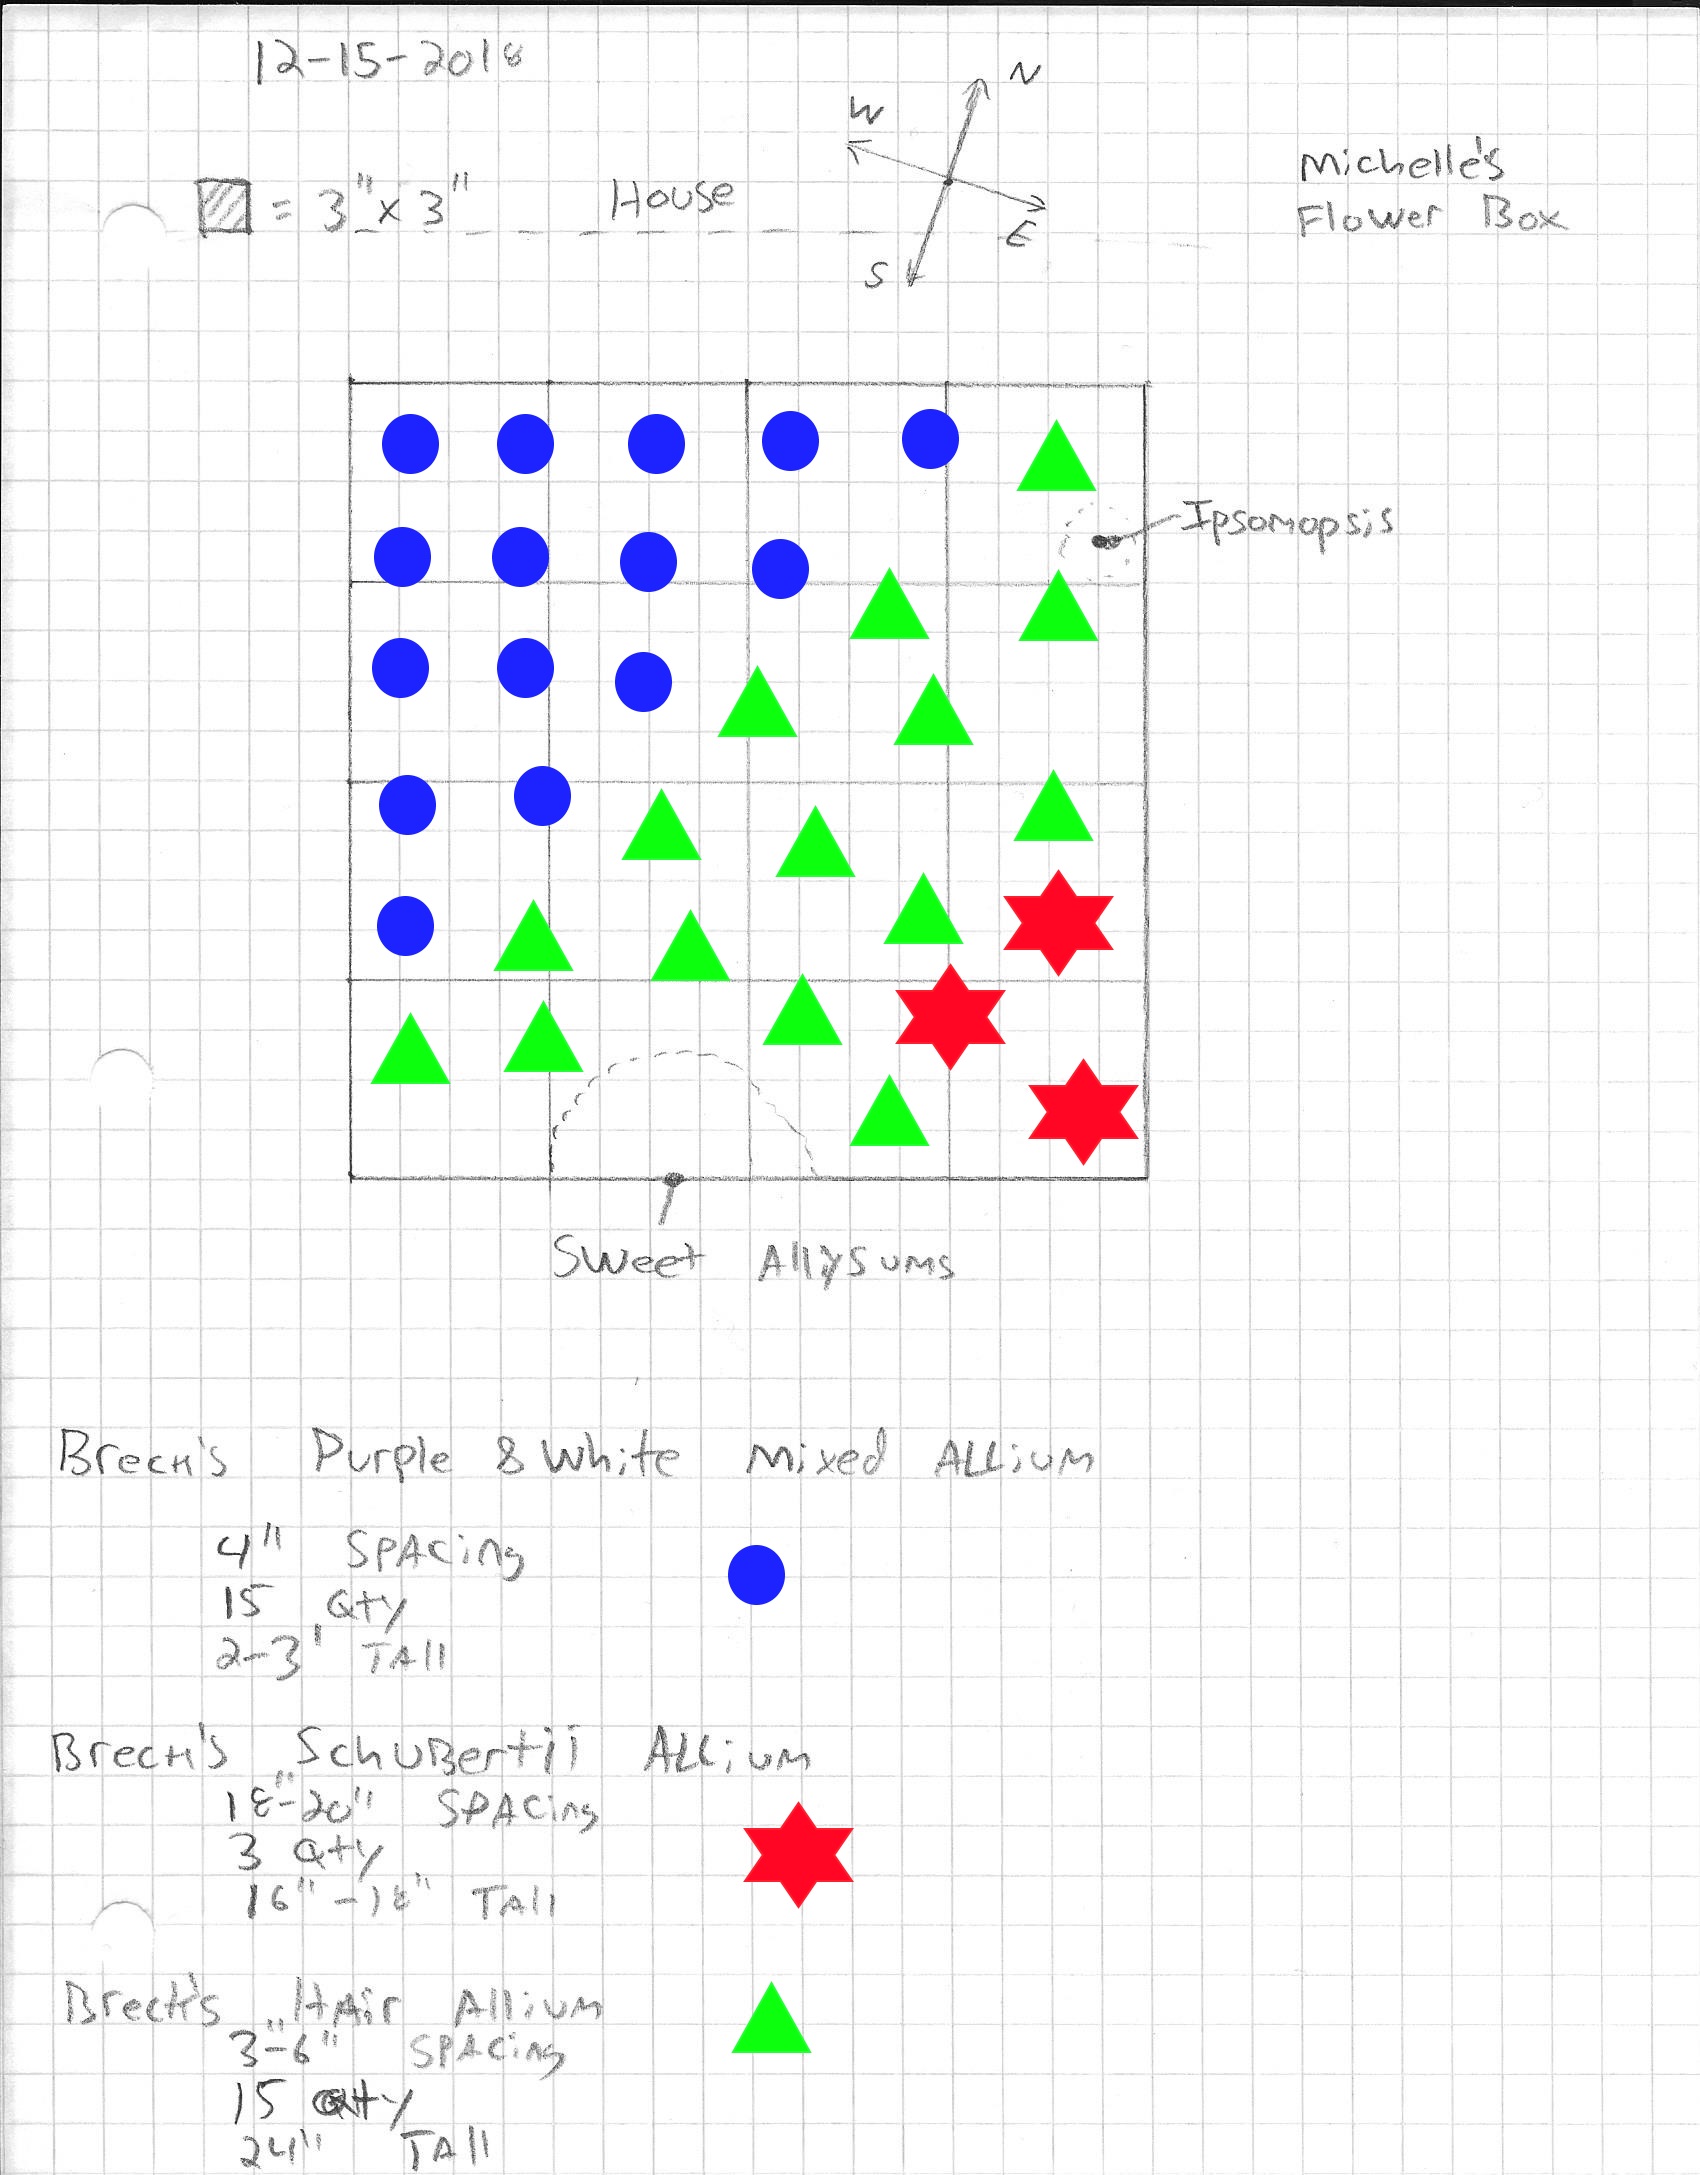 12-15-2018
N
W
= 3"x 3"
House
E
S
Michelle's
Flower Box
Ipsomopsis
Sweet Allysums
Breck's Purple & White Mixed Allium
4" Spacing
15 Qty
2-3' Tall
Breck's Schubertii Allium
18"-20" Spacing
3 Qty
16"-18" Tall
Breck's Hair Allium
3"-6" Spacing
15 Qty
24" Tall